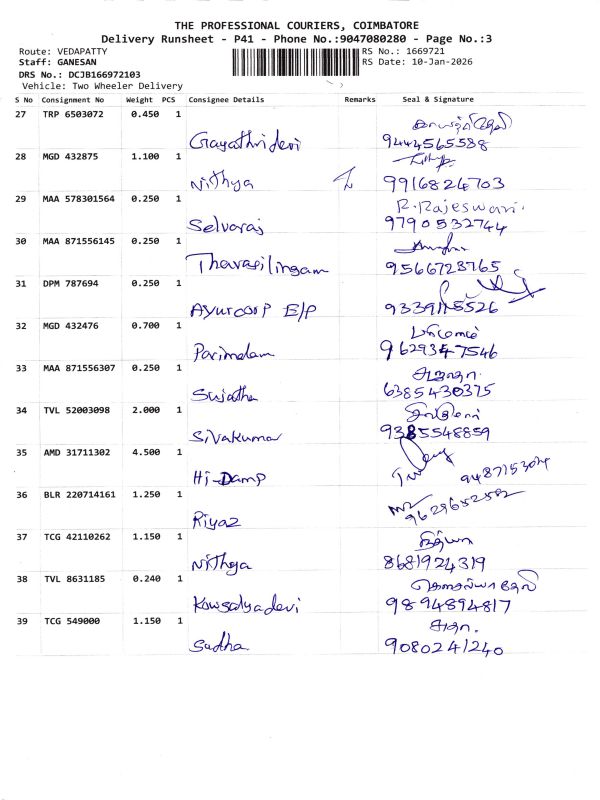 THE PROFESSIONAL COURIERS, COIMBATORE
Delivery Runsheet - P41 - Phone No.:9047080280 - Page No.:3
Route: VEDAPATTY
RS No.: 1669721
Staff: GANESAN
RS Date: 10-Jan-2026
DRS No.: DCJB166972103
Vehicle: Two Wheeler Delivery
S No Consignment No Weight PCS Consignee Details Remarks Seal & Signature
27 TRP 6503072 0.450 1
Gayathridevi 9444565588
28 MGD 432875 1.100 1
Nithya 9916824703
29 MAA 578301564 0.250 1 R. Rajeswari.
Selvaraj 9790532744
30 MAA 871556145 0.250 1
Thavasilingam 9566723765
31 DPM 787694 0.250 1
Ayurcorp E/P
32 MGD 432476 0.700 1
Parimalam 9629347546
33 MAA 871556307 0.250 1 சுஜாதா
Sujatha 6385430375
34 TVL 52003098 2.000 1
Sivakumar 9385548859
35 AMD 31711302 4.500 1
Hi-Damp
36 BLR 220714161 1.250 1
Riyaz 9629652582
37 TCG 42110262 1.150 1 நித்யா
Nithya 8681924319
38 TVL 8631185 0.240 1 கௌசல்யாதேவி
Kowsalyadevi 9894894817
39 TCG 549000 1.150 1 சுதா.
Sudha 9080241240